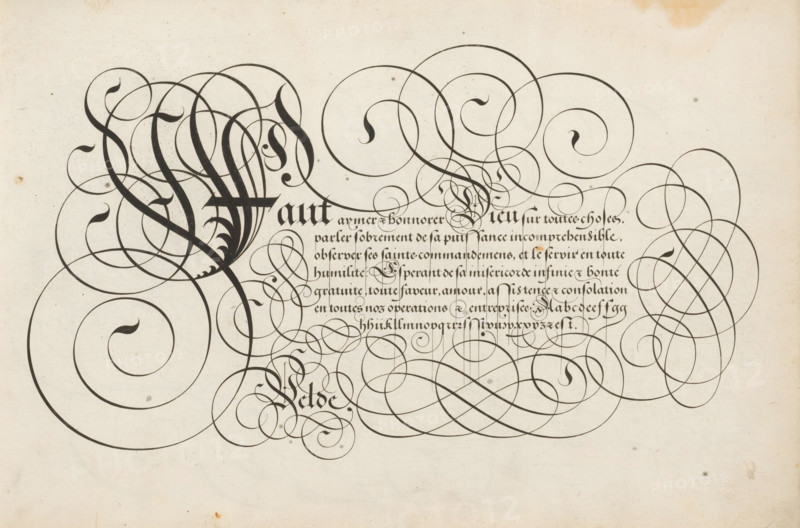 Faut aymer & honnorer Dieu sur toutes choses.
parler sobrement de sa puissance incomprehensible,
observer ses saints commandemens, et le servir en toute
humilite. Esperant de sa misericorde infinie & bonte
gratuite, toute faveur, amour, assistence & consolation
en toutes noz operations & entreprises. Aabcdeefsgg
hhiikllmnopqrrzsſſtvuvpxyvzz&eſt.
Velde.